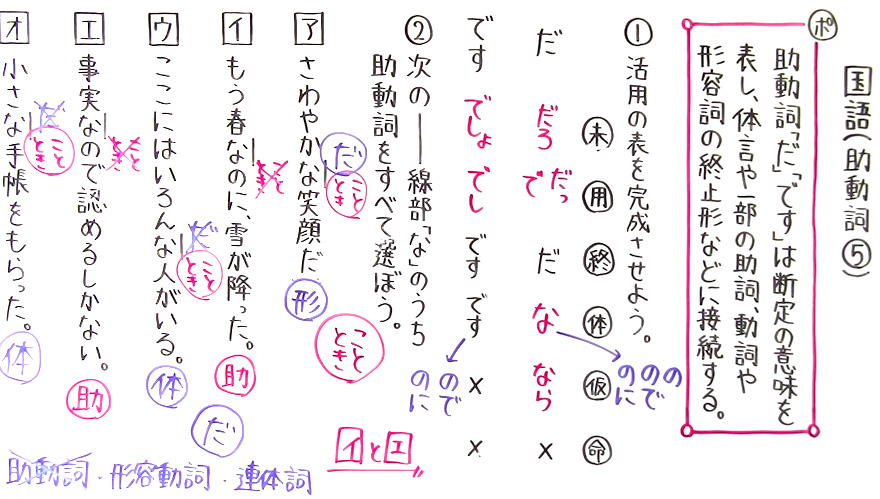 国語(助動詞⑤)
ポ
助動詞「だ」「です」は断定の意味を
表し、体言や一部の助詞、動詞や
形容詞の終止形などに接続する。
① 活用の表を完成させよう。
未 用 終 体 仮 命
だ だろ だっ で だ な なら ×
の
ので
のに
です でしょ でし です です × ×
ので
のに
② 次の――線部「な」のうち
助動詞をすべて選ぼう。
ア さわやかな笑顔だ 形
だ
こと
とき
こと
とき
イ もう春なのに、雪が降った。 助
こと
とき
だ
ウ ここにはいろんな人がいる。 体
だ
こと
とき
エ 事実なので認めるしかない。 助
こと
とき
オ 小さな手帳をもらった。 体
だ
こと
とき
イとエ
助動詞・形容動詞・連体詞